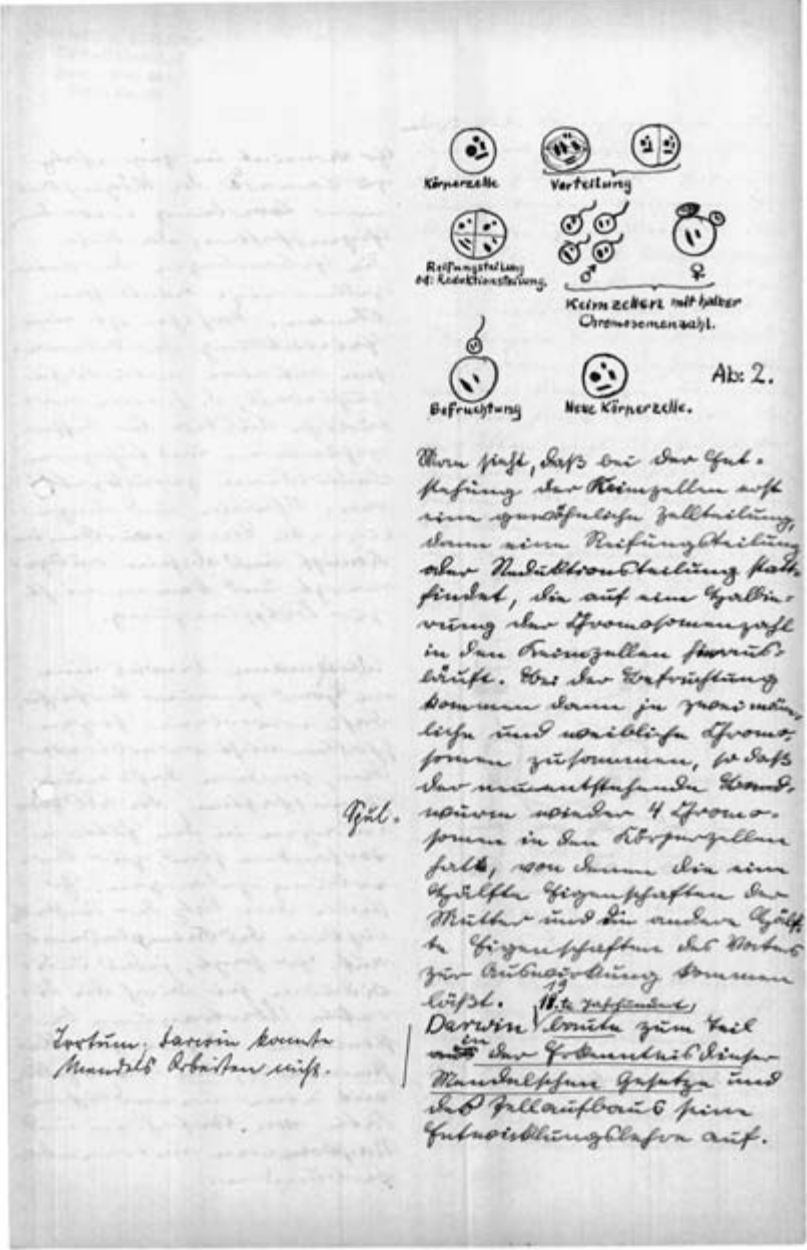 Körperzelle
Vorteilung
Reifungsteilung
od: Reduktionsteilung.
♂
♀
Keimzellen mit halber
Chromosomenzahl.
Befruchtung
Neue Körperzelle.
Ab: 2.
Man sieht, daß bei der Ent-
stehung der Keimzellen erst
eine gewöhnliche Zellteilung,
dann eine Reifungsteilung
oder Reduktionsteilung statt-
findet, die auf eine Halbie-
rung der Chromosomenzahl
in den Keimzellen hinaus-
läuft. Bei der Befruchtung
kommen dann je zwei män-
liche und weibliche Chromo-
somen zusammen, so daß
der neuentstehende
Spul-
wurm wieder 4 Chromo-
somen in den Körperzellen
hat, von denen die eine
Hälfte Eigenschaften der
Mutter und die andere Hälf-
te Eigenschaften des Vaters
zur Auswirkung kommen
läßt.
19
18.te Jahrhundert
Darwin baute zum Teil
in
der Erkenntnis dieser
Mendelschen Gesetze und
des Zellaufbaus seine
Entwicklungslehre auf.
Irrtum; Darwin kannte
Mendels Arbeiten nicht.